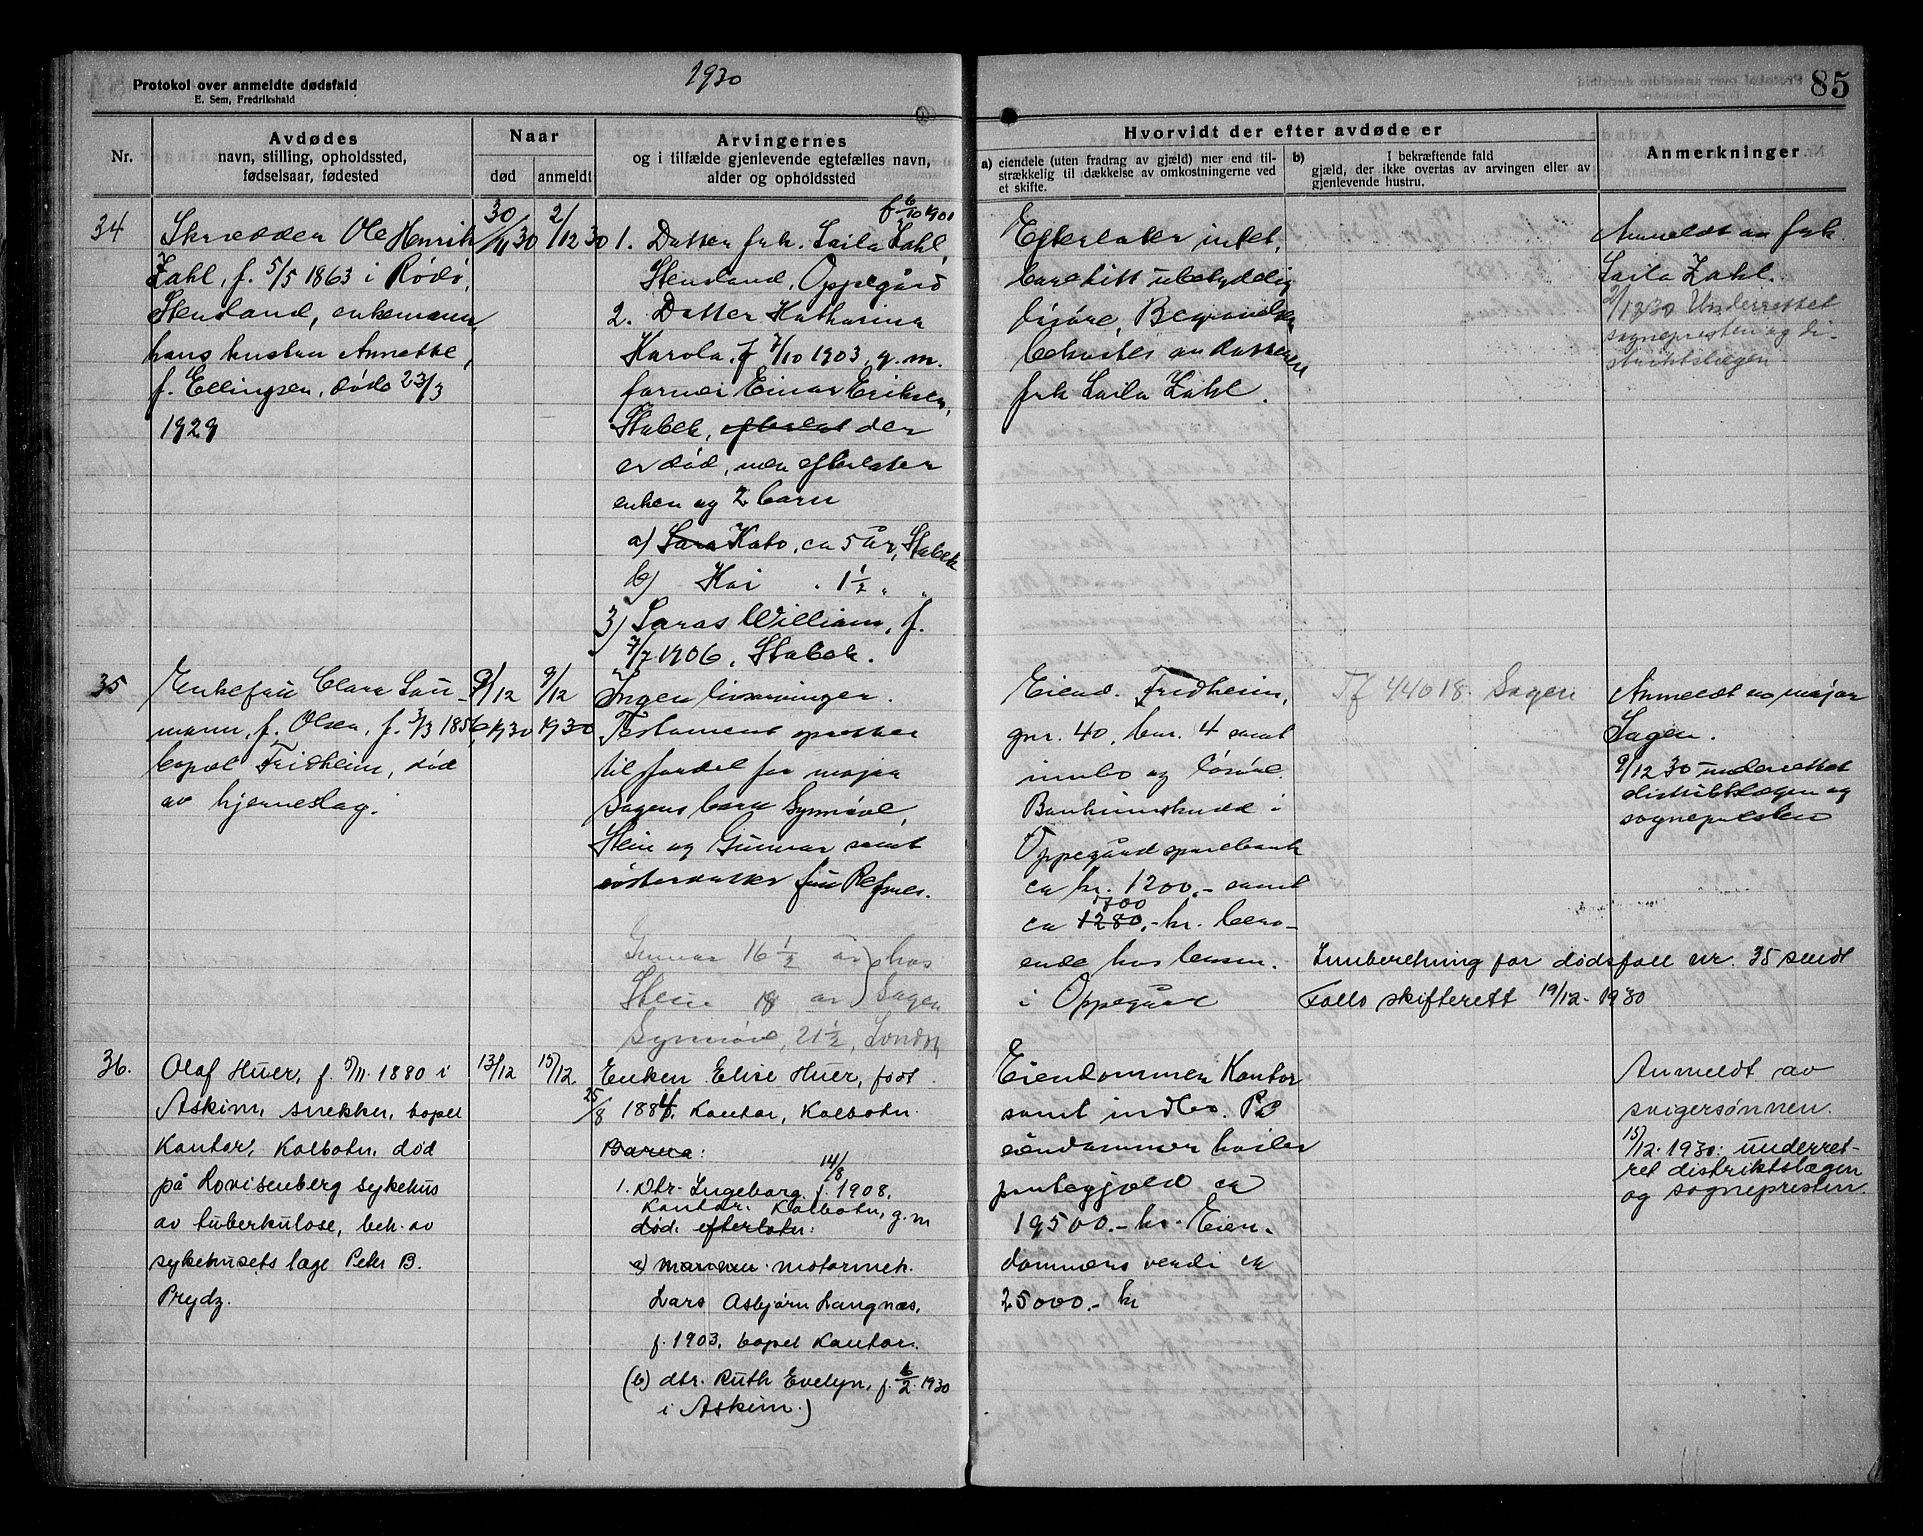 Protokol over anmeldte dødsfald
E. Sem, Fredrikshald
1930
85
Nr.
Avdødes
navn, stilling, opholdssted,
fødselsaar, fødested
Naar
død
anmeldt
Arvingernes
og i tilfælde gjenlevende egtefælles navn,
alder og opholdssted
Hvorvidt der efter avdøde er
a) eiendele (uten fradrag av gjæld) mer end til-
strækkelig til dækkelse av omkostningerne ved
et skifte.
b) I bekræftende fald
gjæld, der ikke overtas av arvingen eller av
gjenlevende hustru.
Anmerkninger
34
Skrædder Ole Henrik
Zahl, f. 5/5 1863 i Rødø,
Stenland, enkemann,
hans hustru Annette,
f. Ellingsen, døde 23/3
1929
30/11 30
2/12 30
f 6/10 1901
1. Datter frk. Laila Zahl,
Stenland, Oppegård
2. Datter Katharina
Karola, f 7/10 1903, g. m.
Einar Eriksen,
Stabek, efterlot der
er død, men efterlater
enken og 2 barn
a) Sara Kato, ca 5 år, Stabek
b) Kai . 1½ " "
3) Saras William, f.
7/7 1906, Stabek.
Efterlater intet,
bare litt ubetydelig
løsøre, Begravelsen
bekostes av datteren
frk Laila Zahl.
Anmeldt av frk.
Laila Zahl.
2/12 30 Underrettet
sognepresten og di-
striktslægen
35
Enkefru Clara Lau-
mann, f. Olsen, f. 3/3 1856,
bopæl Fridheim, død
av hjerneslag.
9/12
1930
9/12
1930
Ingen livsarvinger.
Testament oprettet
til fordel for major
Sagens barn Synnöve,
Stein og Gunnar samt
søsterdatter fru Refsnes.
Gunnar 16 ½ år ) hos
Stein 18 år ) Sagen
Synnöve, 21 ½, London
Eiend. Fridheim,
gnr. 40, bnr. 4 samt
innbo og løsøre.
Bankinnskudd i
Oppegård sparebank
ca kr. 1200,- samt
700
ca 1280,- kr. bero-
ende hos lensm.
i Oppegård
Tf 44018 Sagen
Innberetning for dødsfall nr. 35 sendt
Follo skifterett 19/12-1930
Anmeldt av major
Sagen.
9/12 30 underrettet
distriktslægen og
sognepresten
36.
Olaf Huer, f. 5/11 1880 i
Askim, snekker, bopel
Kantor, Kolbotn, død
på Lovisenberg sykehus
av tuberkulose, beh. av
sykehusets læge Peter B.
Prydz.
13/12
15/12
Enken Elise Huer, født
25/8 1884, Kantor, Kolbotn.
Barna:
14/8
1. Dtr. Ingeborg, f. 1908,
Kantor. Kolbotn, g. m
død. efterlater:
a) motormek.
Lars Asbjørn Langnæs,
f. 1903, bopel Kantor.
(b) dtr. Ruth Evelyn, f. 6/2 1930
i Askim.)
Eiendommen Kantor
samt indbo. På
eiendommen hviler
pantegjæld ca
19500.- kr. Eien-
dommens verdi ca
25000.- kr
Anmeldt av
svigersønnen.
15/12-1930: underret-
ret distriktslægen
og sognepresten.